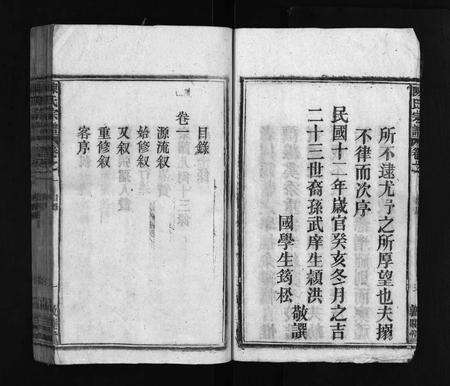 所不逮尤予之所厚望也夫搦
不律而次序
民國十二年歲官癸亥冬月之吉
二十三世裔孫武庠生頴洪
國學生筠松
敬譔
目錄
卷一
源流叙
始修叙
又叙
重修叙
客序